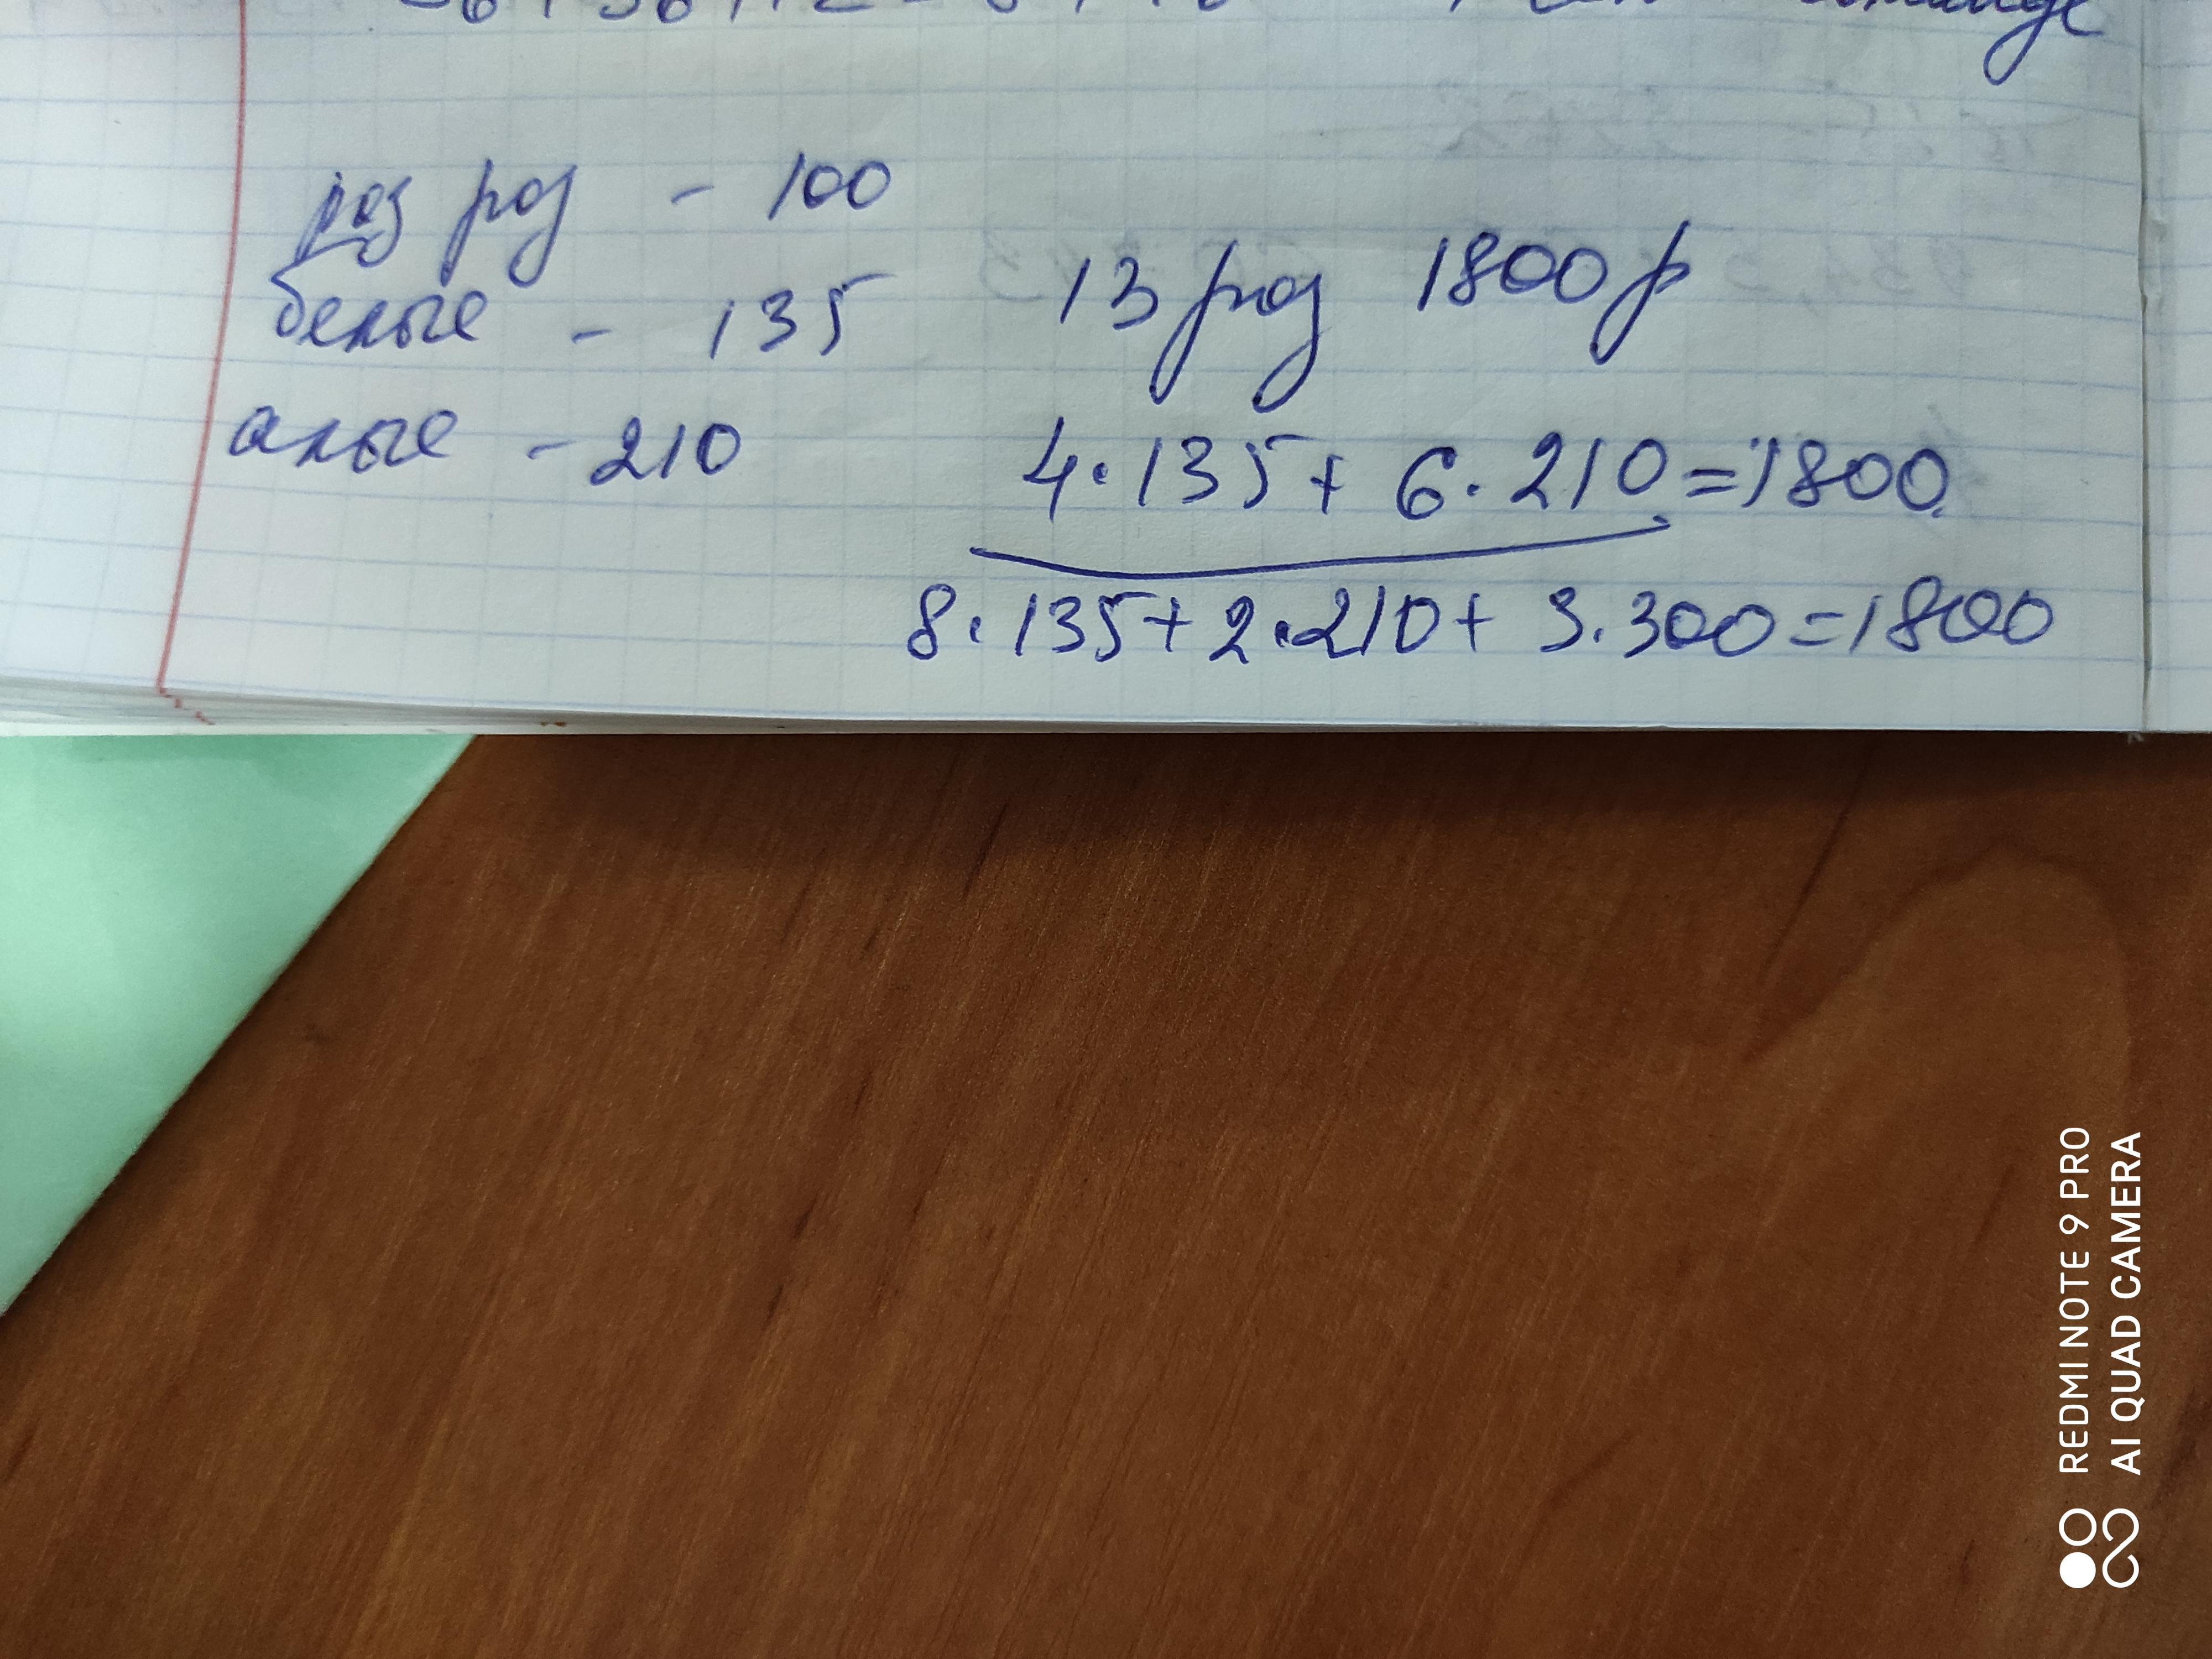 роз роз - 100
белые - 135
алые - 210
13 роз 1800 р
4·135 + 6·210 = 1800
8·135 + 2·210 + 3·300 = 1800
REDMI NOTE 9 PRO
AI QUAD CAMERA